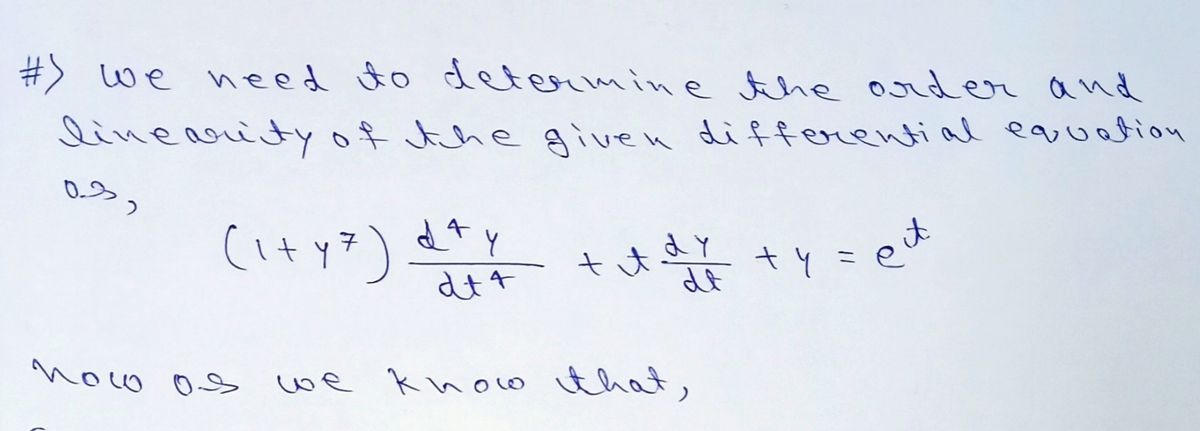 #) we need to determine the order and
linearity of the given differential equation
as,
(1+y⁷) d⁴y/dt⁴ + t dy/dt + y = eᵗ
now as we know that,